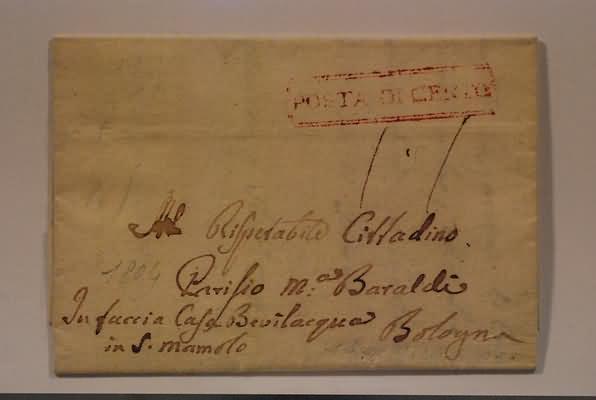 POSTA DI CENTO
Al Rispetabile Cittadino.
1804
Parisio M.a Baraldi
In faccia Casa Bevilacqua
Bologna
in S. Mamolo